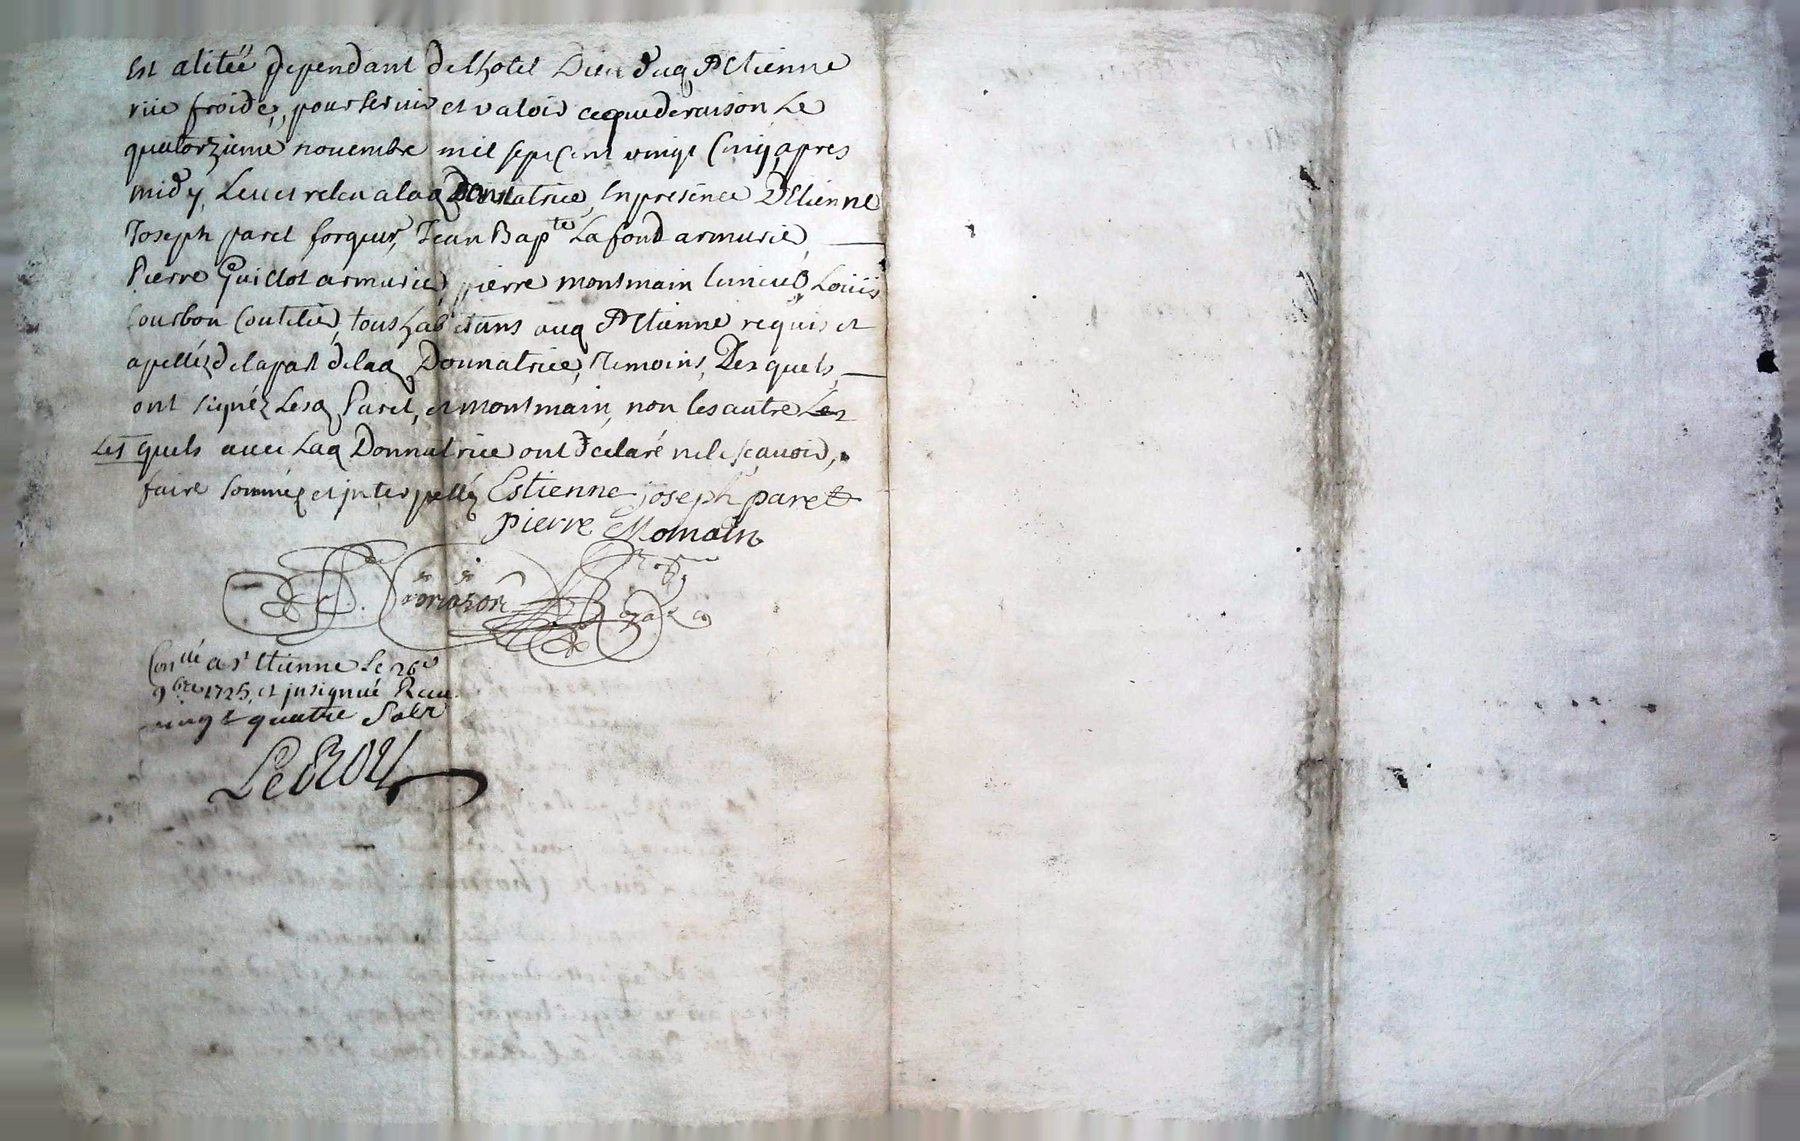 est alitée dependant de lhotel Dieu dud St Etienne
rüe froide, pour servir et valoir ceque de raison Le
quatorzieme novembre mil sept cent vingt Cinq, apres
midy, Leu et releu a lad Donnatrice, En presence D'Etienne
Joseph paret forgeur, Jean Bapte Lafond armurie,
Pierre Guillot armurie, pierre montmain Louis
Courbon Coutelie, tous habitans aud St Etienne requis et
apellez de la part de lad Donnatrice, Temoins, Desquels,
ont signéz Lesd Paret, et montmain, non les autre Les
Lesquels avec Lad Donnatrice ont declaré ne le scavoir,
faire sommez et interpelléz Estienne joseph paret
pierre Momain
Conllé a St Etienne Le 26e
9bre 1725, et insignué Reçu
vingt quatre Solz
Le Roy